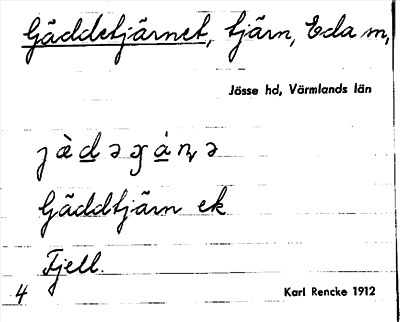 Gäddetjärnet, tjärn, Eda sn,
Jösse hd, Värmlands län
Gäddtjärn ek
Fjell.
4
Karl Rencke 1912